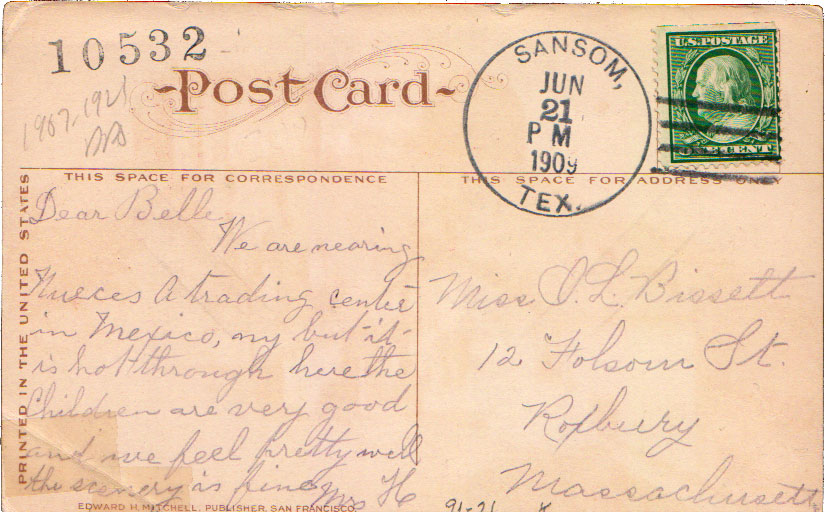 10532
1907-1921
Post Card
SANSOM,
JUN
21
P M
1909
TEX.
U.S. POSTAGE
CENT
THIS SPACE FOR CORRESPONDENCE
THIS SPACE FOR ADDRESS ONLY
PRINTED IN THE UNITED STATES
Dear Belle
We are nearing
Nueces A trading centre
in Mexico, my but it
is hot through here the
Children are very good
and we feel pretty well
the scenery is fine
Mrs H
Miss O. L. Bissett
12 Folsom St.
Roxbury
Massachusetts
EDWARD H. MITCHELL, PUBLISHER, SAN FRANCISCO.
91-21